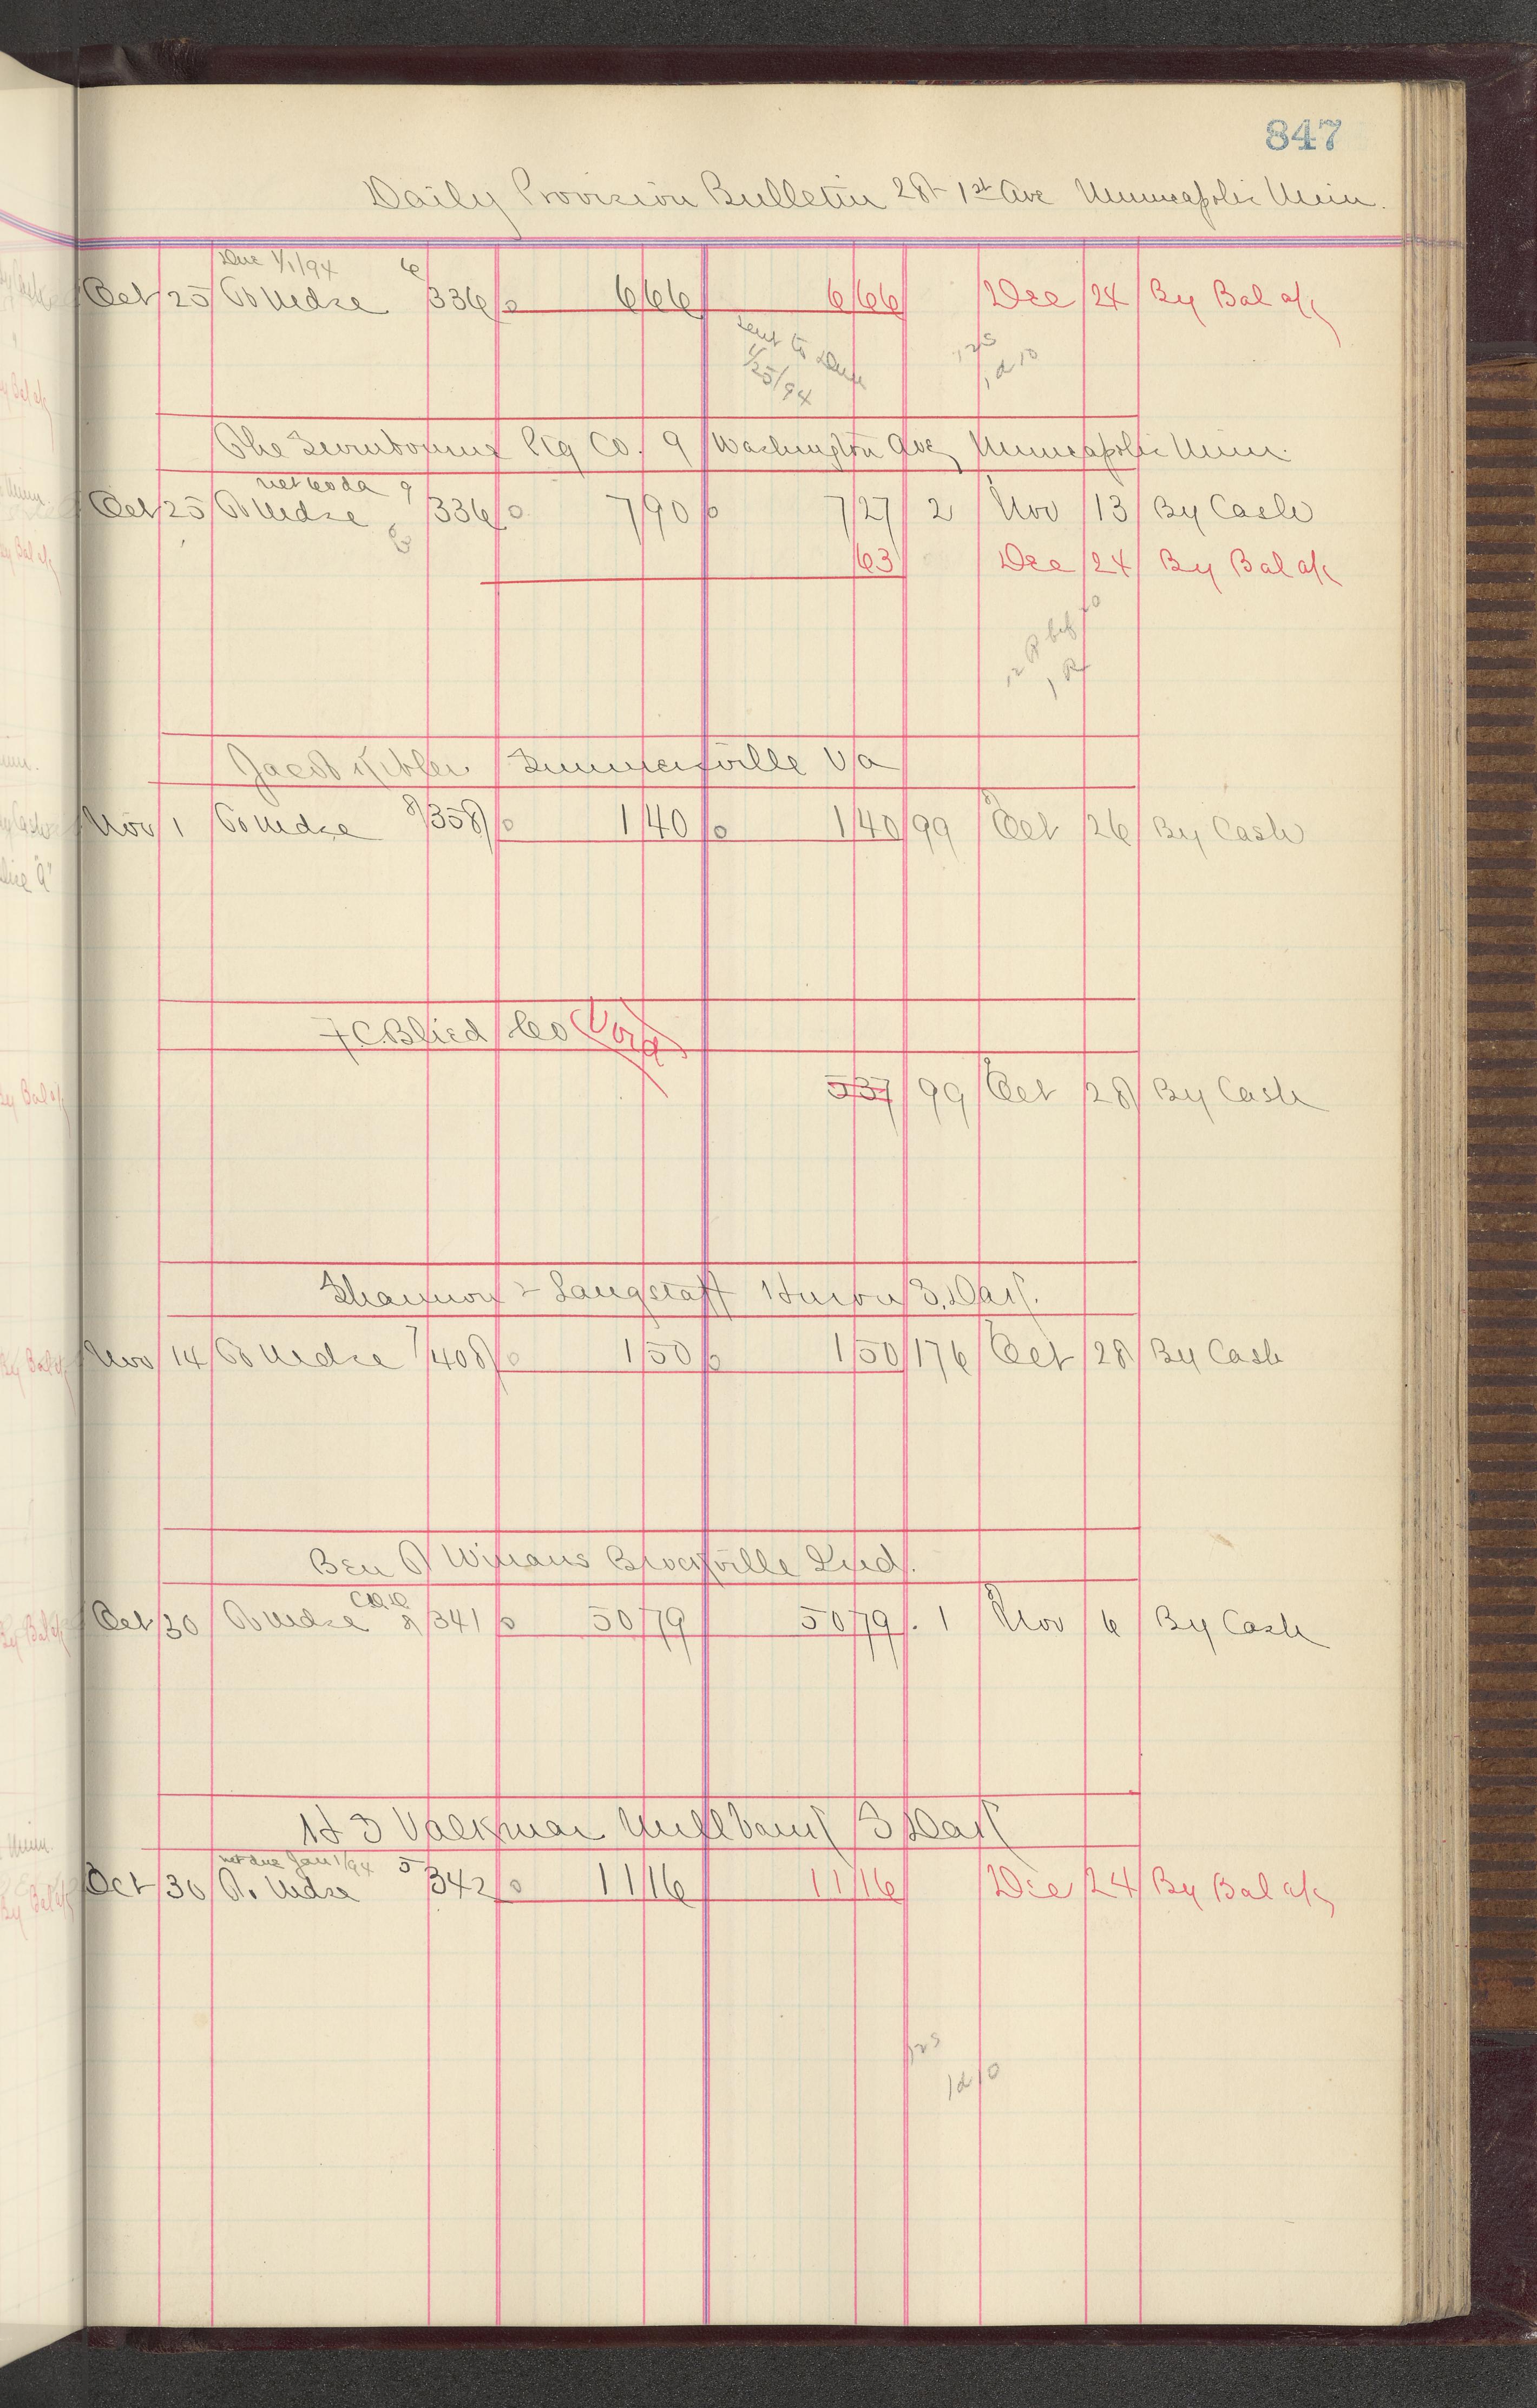 847
Daily Provision Bulletin 28-1st Ave Minneapolis Minn.
Due 1/1/94 6
Oct 25 To Mdse 336 6 66 6 66 Dec 24 By Bal a/c
sent to Dun
1/25/94
The Ptg Co. 9 Washington Ave Minneapolis Minn.
net 60 da 9
Oct 25 To Mdse 336 7 90 7 27 2 Nov 13 By Cash
63 Dec 24 By Bal a/c
Jacob Kibler Va
Nov 1 To Mdse 8 358 1 40 1 40 99 Oct 26 By Cash
F C Blied Co Void
5 37 99 Oct 28 By Cash
Shannon & Langstaff Huron S. Dak.
Nov 14 To Mdse 7 408 1 50 1 50 176 Oct 28 By Cash
Ben Winans Brookville Ind.
C.O.D.
Oct 30 To Mdse 8 341 50 79 50 79 1 Nov 6 By Cash
Valkmar Millbank S Dak
net due Jan 1/94 5
Oct 30 To Mdse 342 11 16 11 16 Dec 24 By Bal a/c